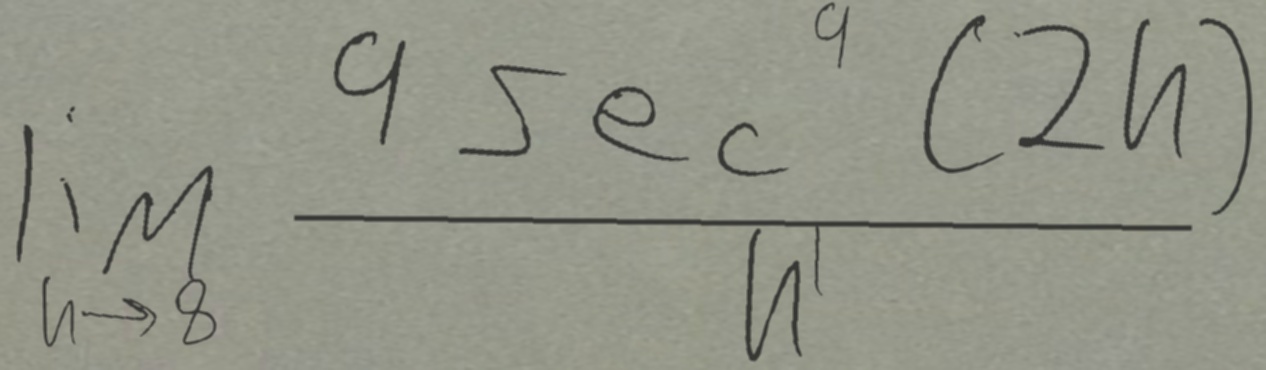 \lim_{h \to 8} \frac{9 \sec^{9} (2h)}{h^{1}}